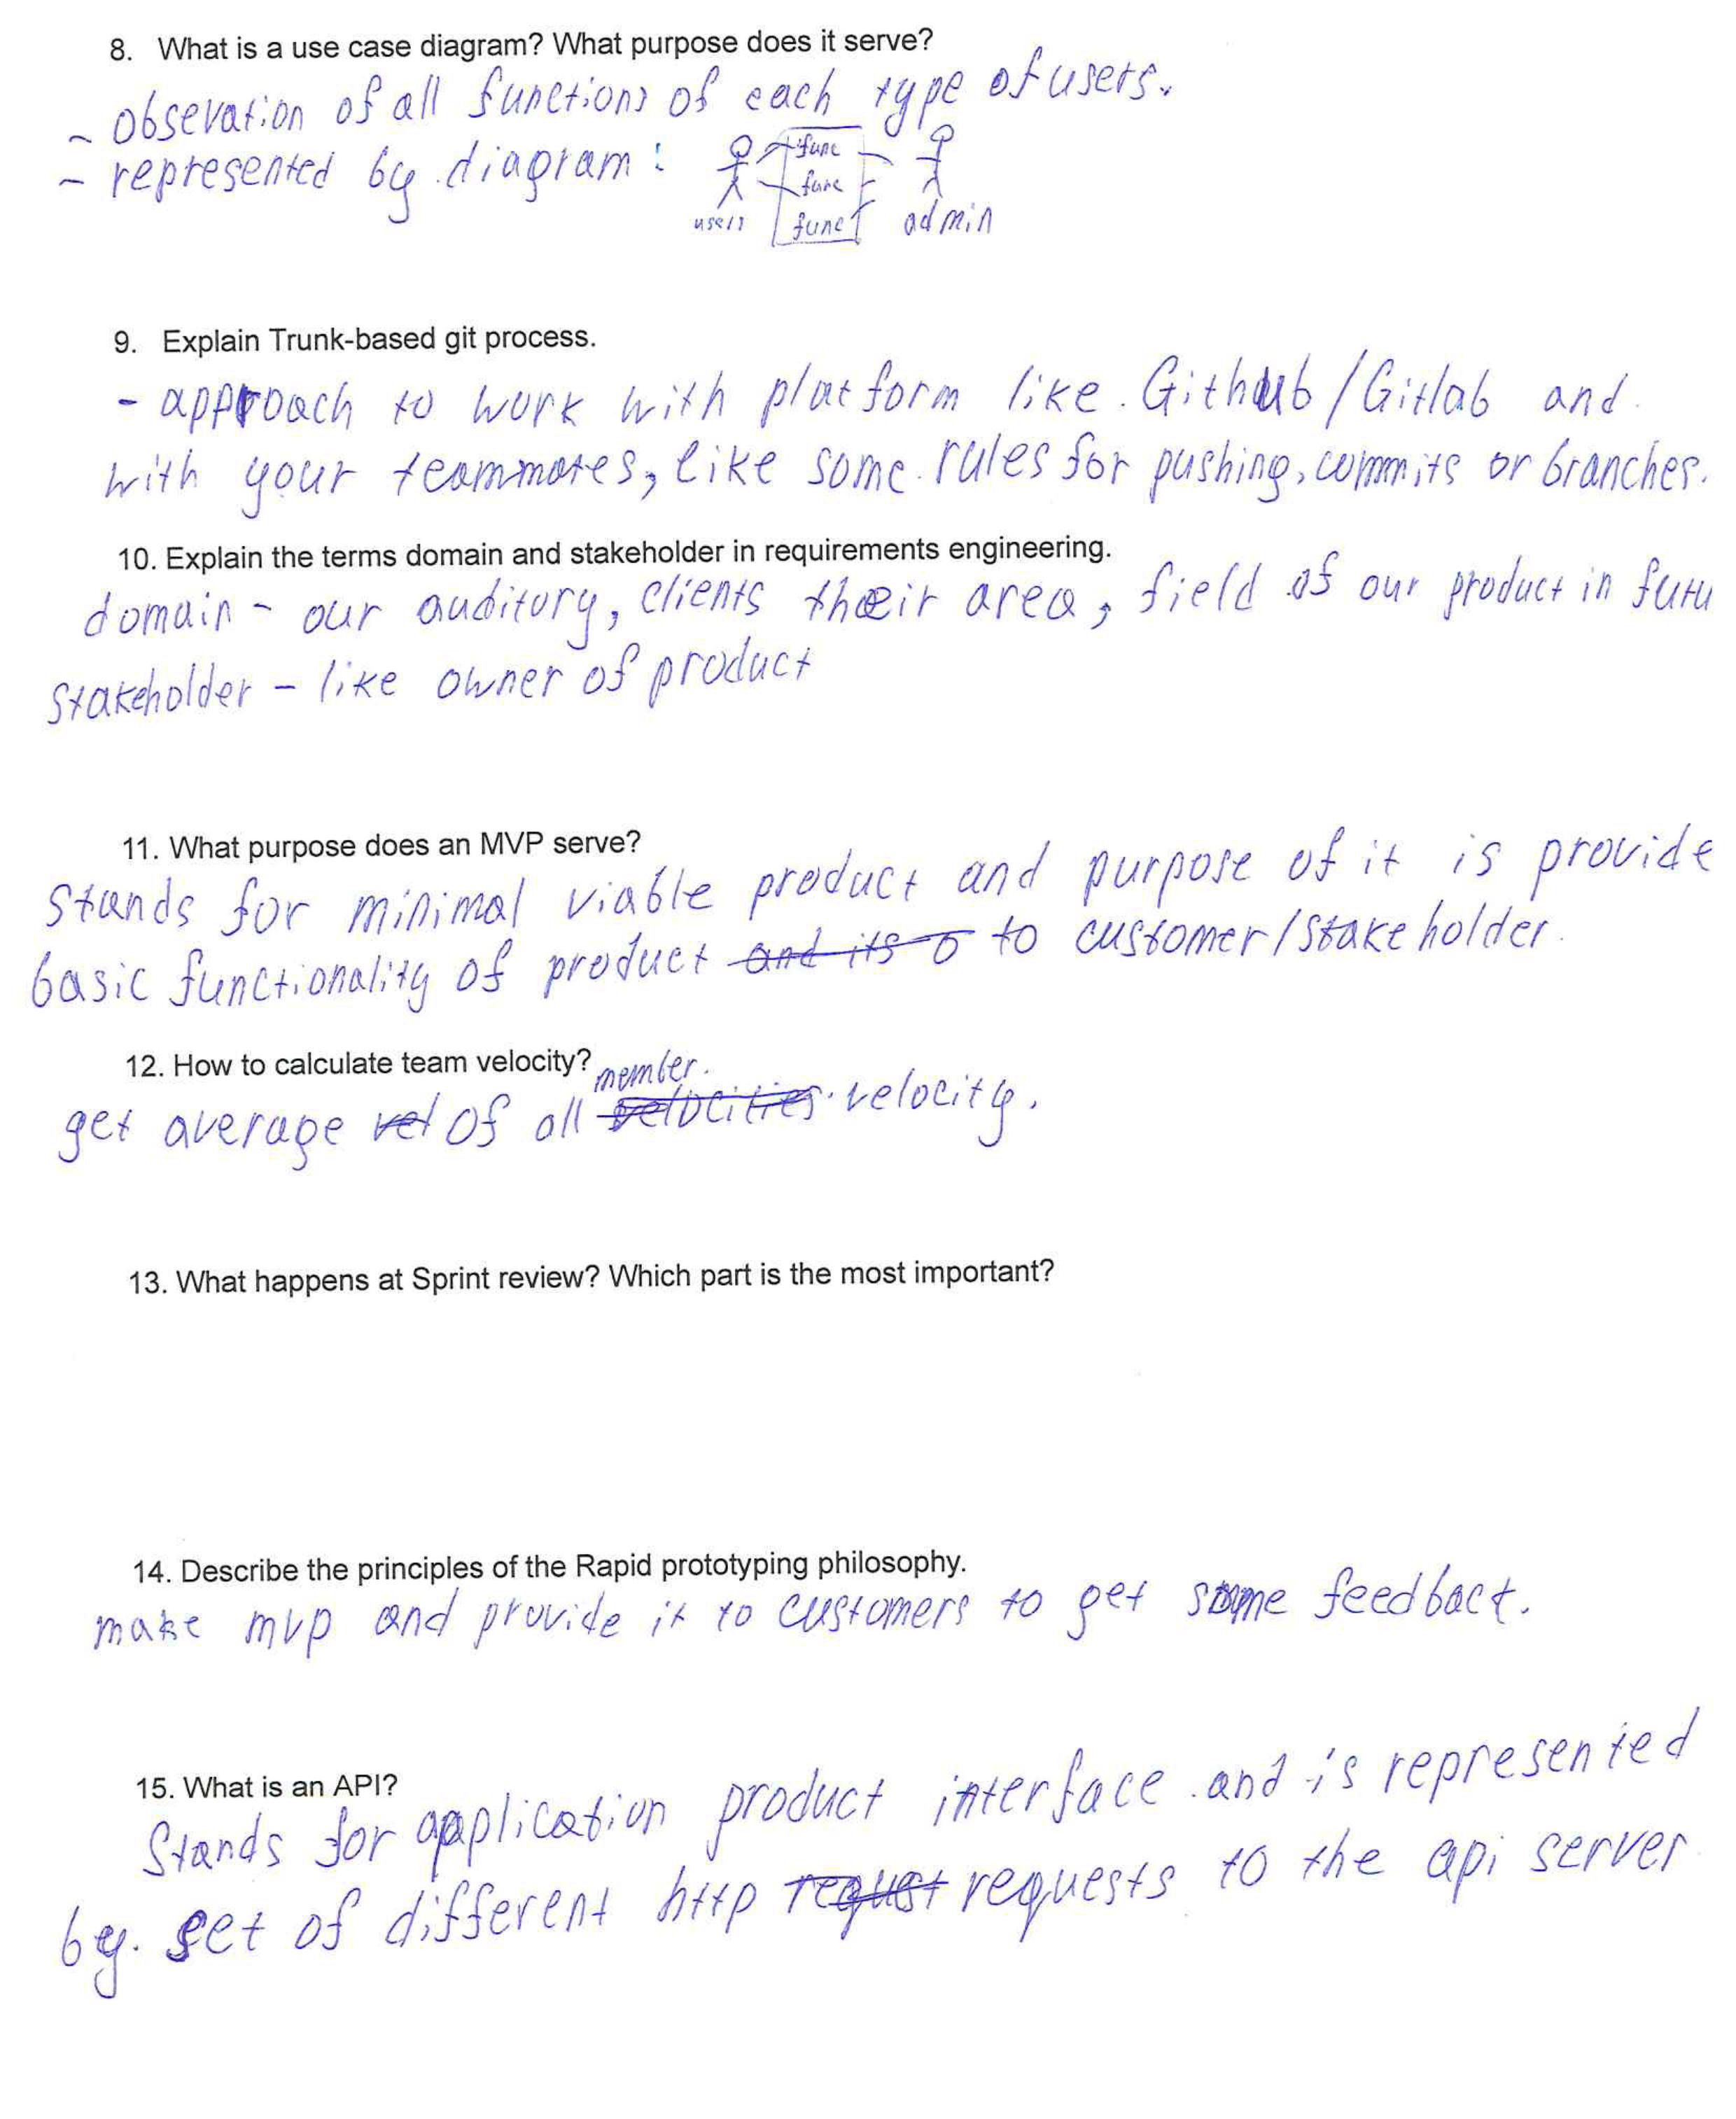 8. What is a use case diagram? What purpose does it serve?
- obsevation of all functions of each type of users.
- represented by diagram:
func
func
func
users
admin
9. Explain Trunk-based git process.
- approach to work with platform like Github/Gitlab and
with your teammates, like some rules for pushing, commits or branches.
10. Explain the terms domain and stakeholder in requirements engineering.
domain - our auditory, clients their area, field of our product in futu
stakeholder - like owner of product
11. What purpose does an MVP serve?
Stands for minimal viable product and purpose of it is provide
basic functionality of product and its o to customer/stakeholder.
12. How to calculate team velocity?
member
get average vel of all velocities velocity.
13. What happens at Sprint review? Which part is the most important?
14. Describe the principles of the Rapid prototyping philosophy.
make mvp and provide it to customers to get some feedbact.
15. What is an API?
Stands for application product interface and is represented
by set of different http requst requests to the api server